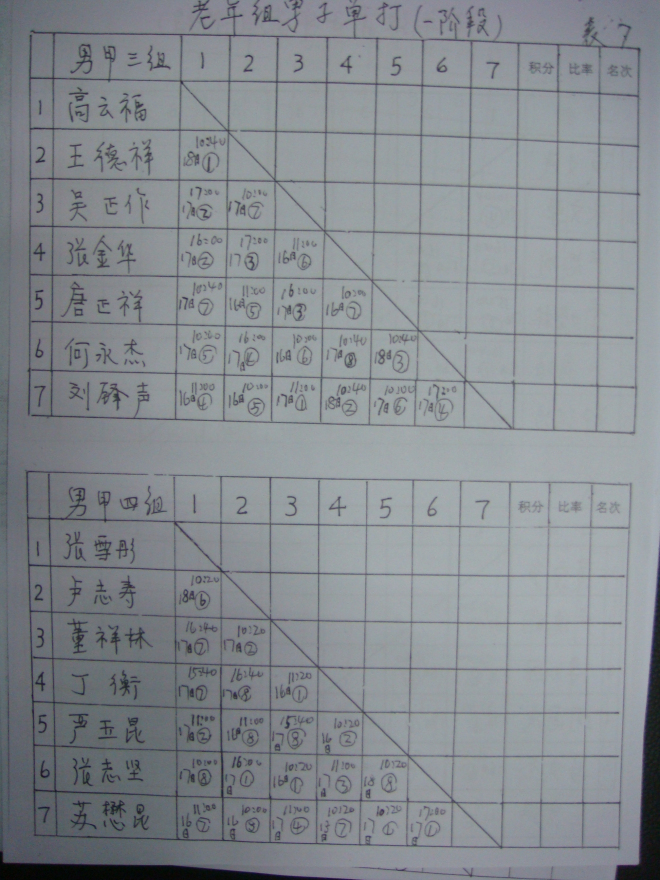 老年组男子单打(一阶段)
表7
男甲三组 1 2 3 4 5 6 7 积分 比率 名次
1 高云福
2 王德祥 10:40 18日①
3 吴正作 17:00 17日② 10:00 17日⑦
4 张金华 16:00 17日② 17:00 17③ 11:00 16日⑥
5 唐正祥 10:40 17日⑦ 11:00 16日⑤ 16:00 17日③ 10:00 16日⑦
6 何永杰 17日⑤ 16:00 17日④ 10:00 16日⑥ 10:40 17日⑧ 10:40 18日③
7 刘锋声 11:00 16日④ 10:00 16日⑤ 11:00 17日① 10:40 18日② 10:00 17日⑥ 17:00 17日④
男甲四组 1 2 3 4 5 6 7 积分 比率 名次
1 张雪彤
2 卢志寿 10:20 18日⑥
3 董祥林 16:40 17日⑦ 10:20 17日②
4 丁衡 15:40 17日⑦ 16:40 17日⑧ 11:20 16日①
5 严玉昆 11:00 17日② 11:00 16日⑧ 15:40 17日⑧ 10:20 16日②
6 张志坚 10:00 17日⑧ 16:00 17日① 10:20 16日① 11:00 17日③ 18日⑧
7 苏懋昆 11:00 16日⑦ 10:00 16日 11:00 17日④ 10:20 日⑦ 10:20 17日 17日①